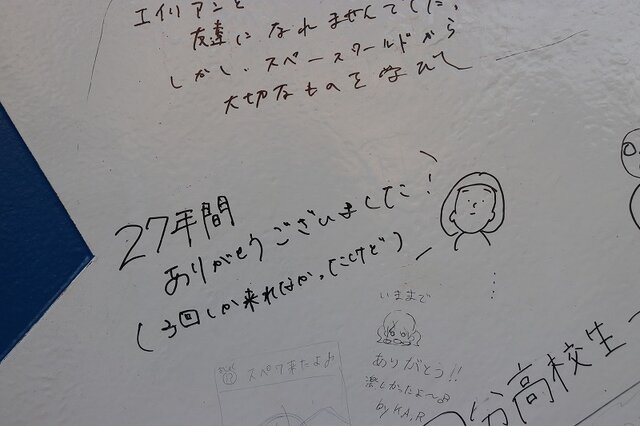 エイリアンと
友達になれませんでした。
しかし、スペースワールドから
大切なものを学びして
27年間
ありがとうございました!
(3回しか来れなかったけど)
いままで
ありがとう!!
楽しかったよ〜♪
by K.A,R
スペワ来たよ♪
分高校生